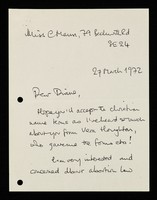 Miss C Mann, 79
SE24
29 March 1972
Dear Diane,
Hope you'll accept the christian
name terms as I've heard so much
about you from Vera Houghton,
she gave me yr. home etc!
I'm very interested and
concerned about abortion law